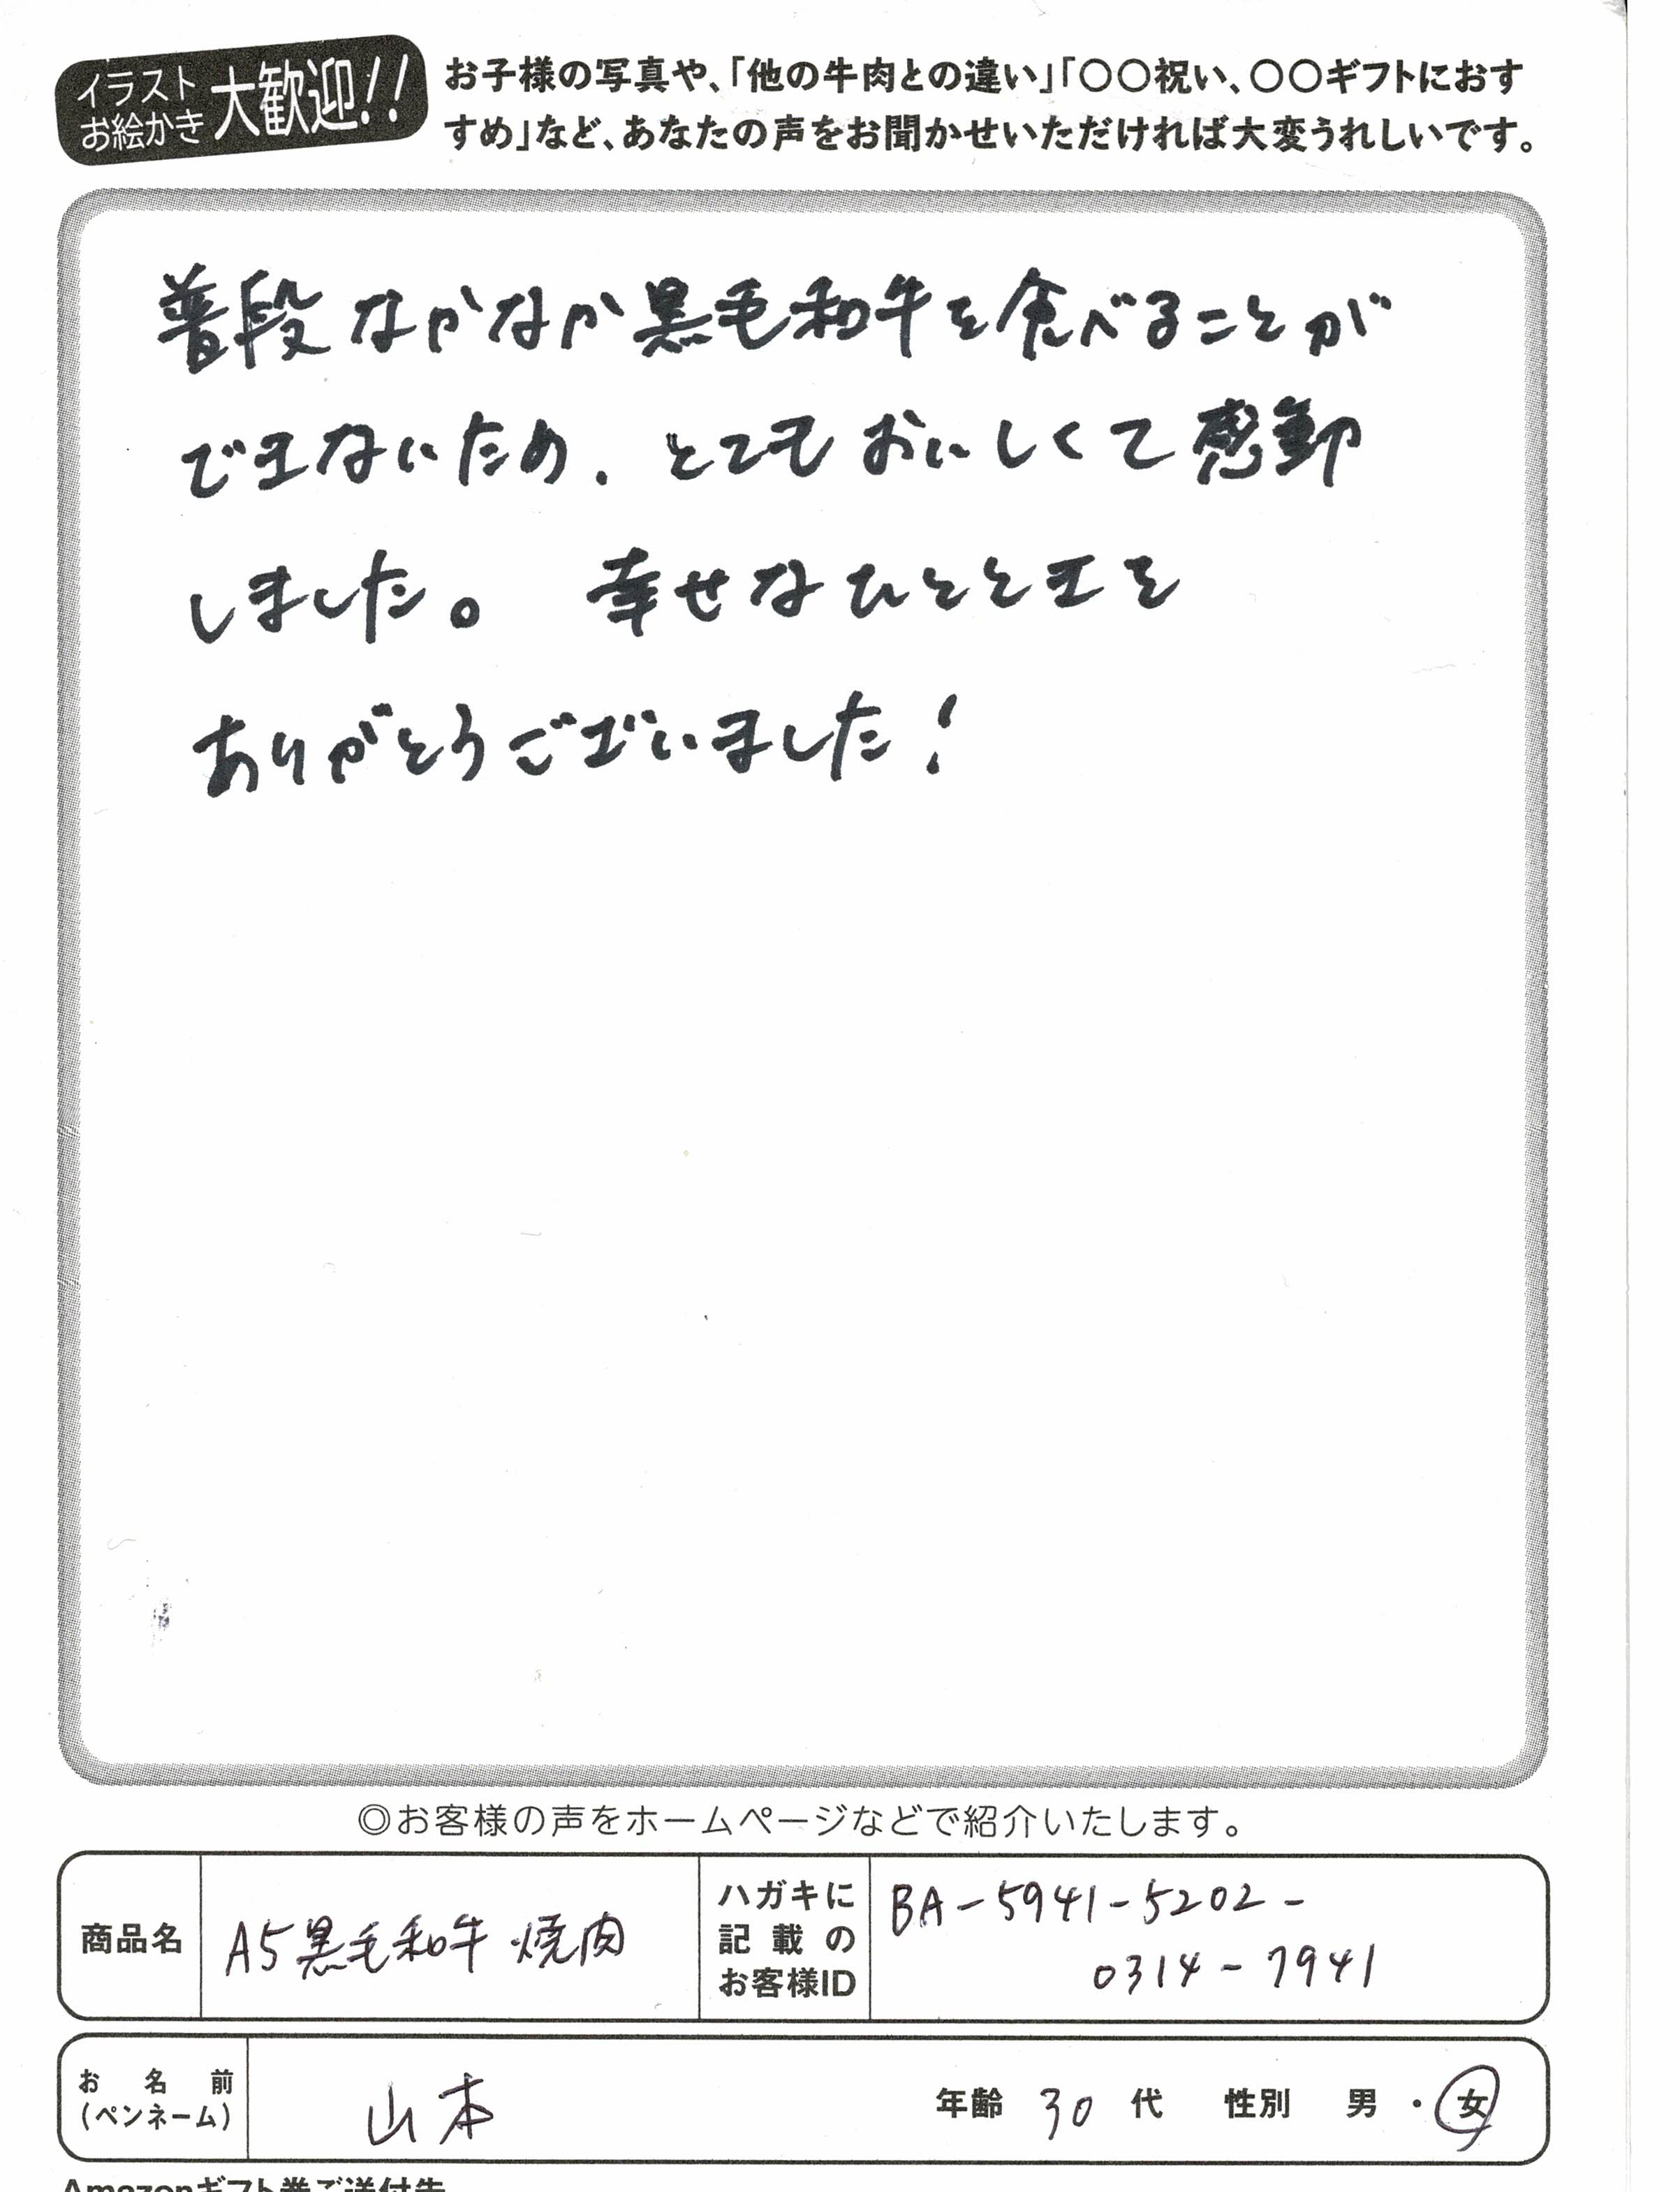 イラスト
お絵かき
大歓迎!!
お子様の写真や、「他の牛肉との違い」「〇〇祝い、〇〇ギフトにおす
すめ」など、あなたの声をお聞かせいただければ大変うれしいです。
普段なかなか黒毛和牛を食べることが
できないため、とてもおいしくて感動
しました。 幸せなひとときを
ありがとうございました!
◎お客様の声をホームページなどで紹介いたします。
商品名
A5黒毛和牛 焼肉
ハガキに
記載の
お客様ID
BA-5941-5202-
0314-7941
お名前
(ペンネーム)
山本
年齢 30 代 性別 男・女
Amazonギフト券ご送付先